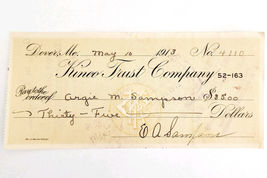 Dover, Me. May 10 1913 No. 4210
Kineo Trust Company 52-163
Pay to the order of Argie M. Sampson $35.00
Thirty-Five Dollars
E A Sampson